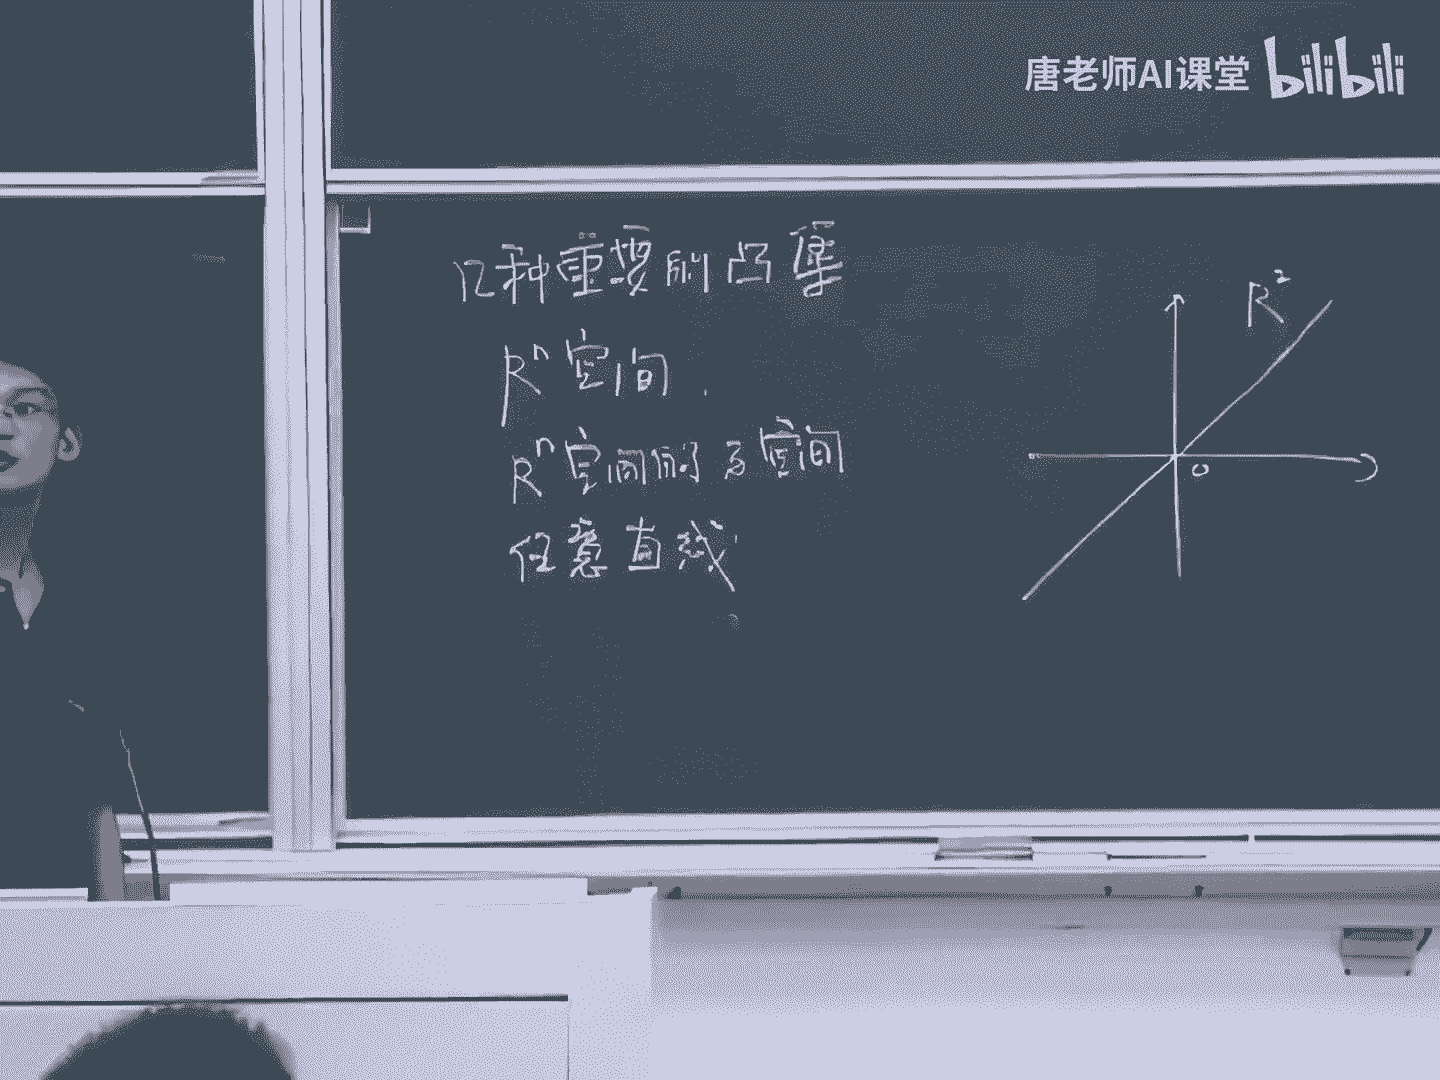 唐老师AI课堂 bilibili
几种重要的凸集
Rⁿ空间.
Rⁿ空间的子空间
任意直线
R²
0